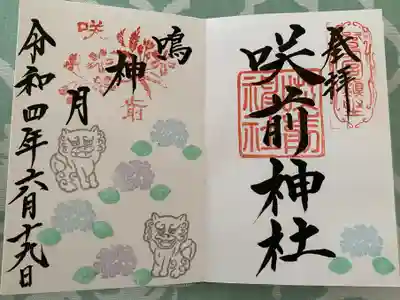 奉拝
咲前神社
鳴神月
令和四年六月十九日
咲
前